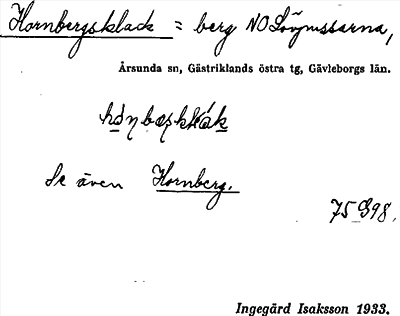 Hornbergsklack = berg NO Lövmossarna,
Årsunda sn, Gästriklands östra tg, Gävleborgs län.
Se även Hornberg.
75 G98.
Ingegärd Isaksson 1933.